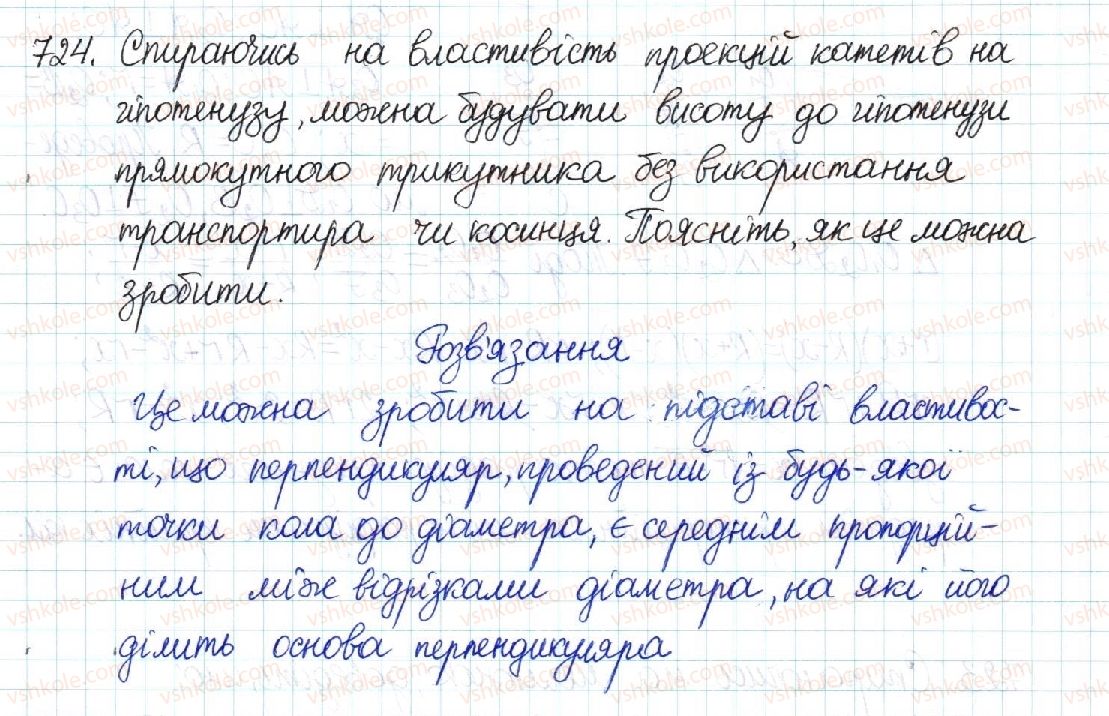 724. Спираючись на властивість проекцій катетів на
гіпотенузу, можна будувати висоту до гіпотенузи
прямокутного трикутника без використання
транспортира чи косинця. Поясніть, як це можна
зробити.
Розв'язання
Це можна зробити на підставі властивос-
ті, що перпендикуляр, проведений із будь-якої
точки кола до діаметра, є середнім пропорцій-
ним між відрізками діаметра, на які його
ділить основа перпендикуляра